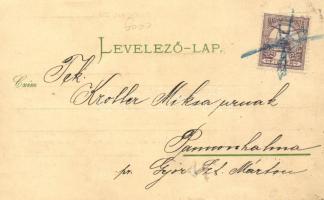 LEVELEZŐ-LAP.
Czim
Tek.
Kroller Miksa urnak
Pannonhalma
pr. Győr Szt. Márton